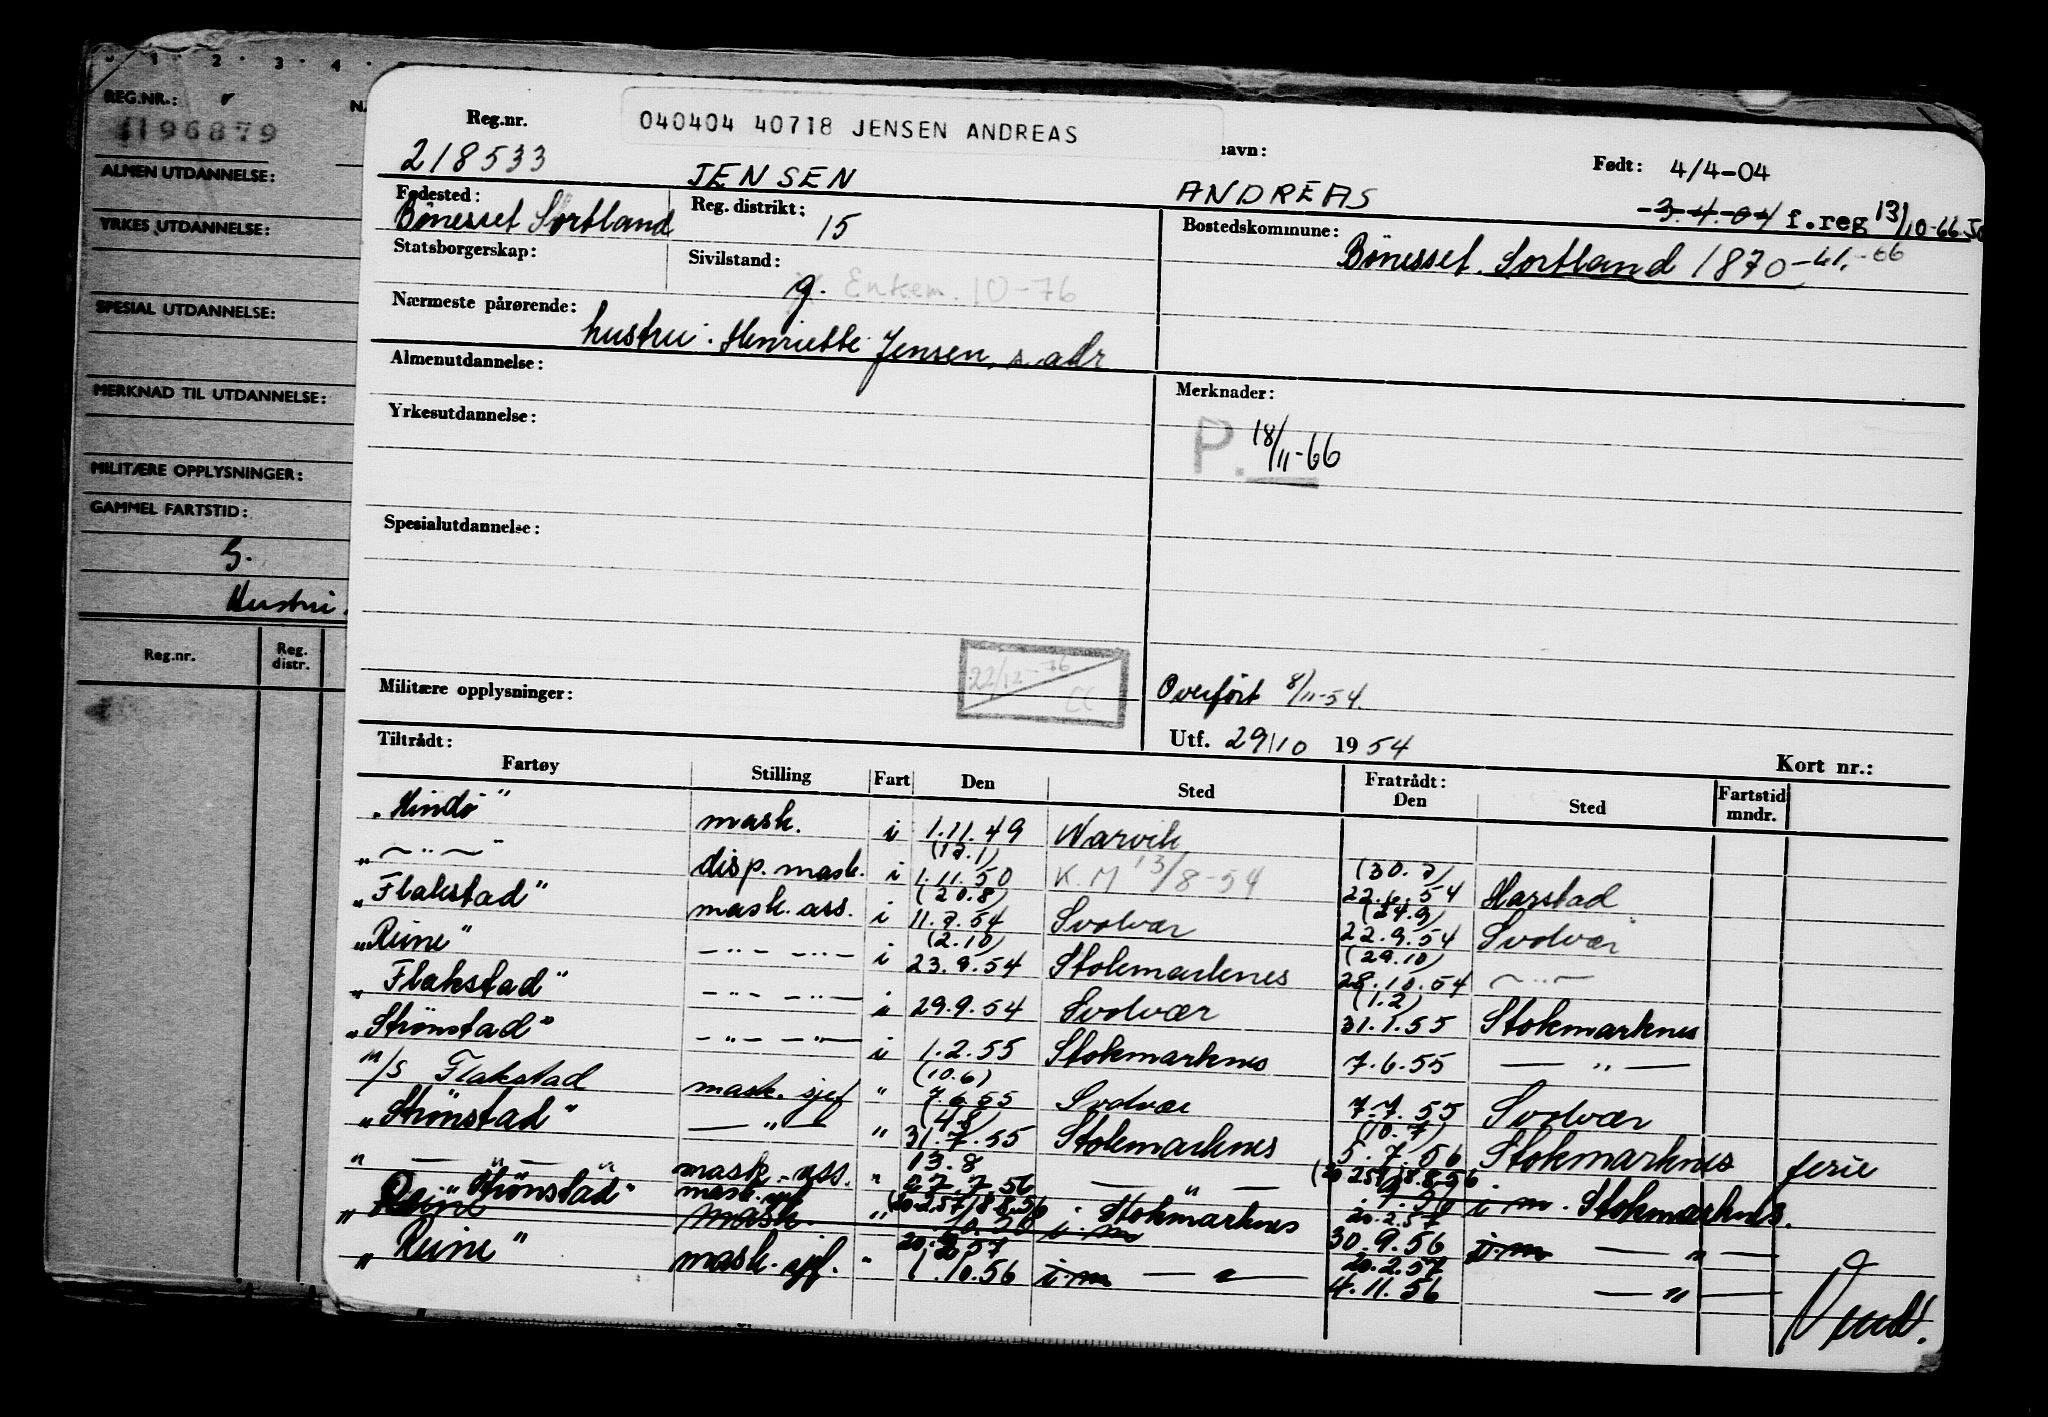 0 1 2 3 4
REG.NR.:
196879
ALMEN UTDANNELSE:
YRKES UTDANNELSE:
SPESIAL UTDANNELSE:
MERKNAD TIL UTDANNELSE:
MILITÆRE OPPLYSNINGER:
GAMMEL FARTSTID:
Hustru
Reg.nr. Reg. distr.
040404 40718 JENSEN ANDREAS
Reg.nr. navn: Født: 4/4-04
218533 JENSEN ANDREAS 3.4.04 f.reg 13/10-66
Fødested: Reg. distrikt: Bostedskommune:
Bönesset Sortland 15 Bönesset, Sortland 1870-41.-66
Statsborgerskap: Sivilstand:
g. Enkem. 10-76
Nærmeste pårørende:
hustru: Henriette Jensen, s. adr
Almenutdannelse: Merknader:
Yrkesutdannelse: P. 18/11-66
Spesialutdannelse:
22/12-76
Militære opplysninger: Overfört 8/11-54.
Utf. 29/10 1954
Tiltrådt: Fratrådt: Kort nr.:
Fartøy Stilling Fart Den Sted Den Sted Fartstid mndr.
"Hindö" mask. i 1.11.49 Narvik
" — " — " disp. mask. i (17.1) 1.11.50 K.M 13/8-54 (30.7) 22.6.54 Harstad
"Flakstad" mask. ass. i (20.8) 11.7.54 Svolvær (24.9) 22.9.54 Svolvær
"Reine" — " — — " — i (2.10) 23.9.54 Stokmarknes (29.10) 28.10.54 — " —
"Flakstad" — " — — " — i 29.9.54 Svolvær (1.2) 31.1.55 Stokmarknes
"Strönstad" — " — — " — i 1.2.55 Stokmarknes 7.6.55 — " —
m/s Flakstad mask. sjef " (10.6) 7.6.55 Svolvær 7.7.55 Svolvær
"Strönstad" — " — " (4.8) 31.7.55 Stokmarknes (10.7) 5.7.56 Stokmarknes ferie
" — " — " mask. ass. " 13.8 27.7.56 — " — 8.8.56
"Strönstad" mask. sjef " (20.2.57) 8.8.56 i m Stokmarknes 20.2.57 30.9.56 i m — " —
Reine mask. i m Stokmarknes.
"Reine" mask. sjef. " 20.2.57 1.10.56 i m — " — 20.2.57 4.11.56 — " —
Vend.